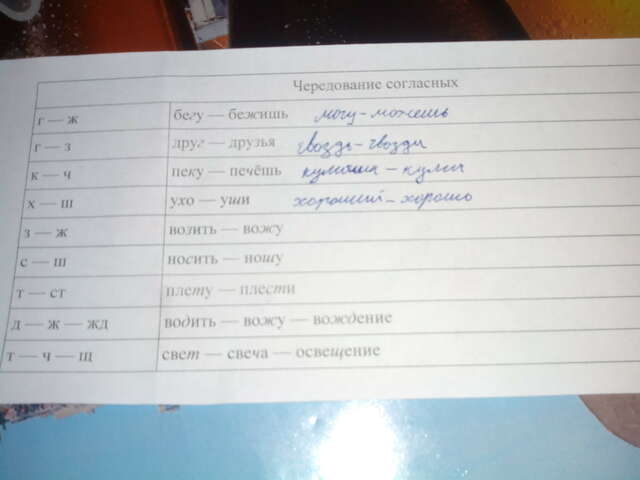 Чередование согласных
г — ж бегу — бежишь могу - можешь
г — з друг — друзья гвоздь - гвозди
к — ч пеку — печёшь - кулич
х — ш ухо — уши хороший - хорошо
з — ж возить — вожу
с — ш носить — ношу
т — ст плету — плести
д — ж — жд водить — вожу — вождение
т — ч — щ свет — свеча — освещение